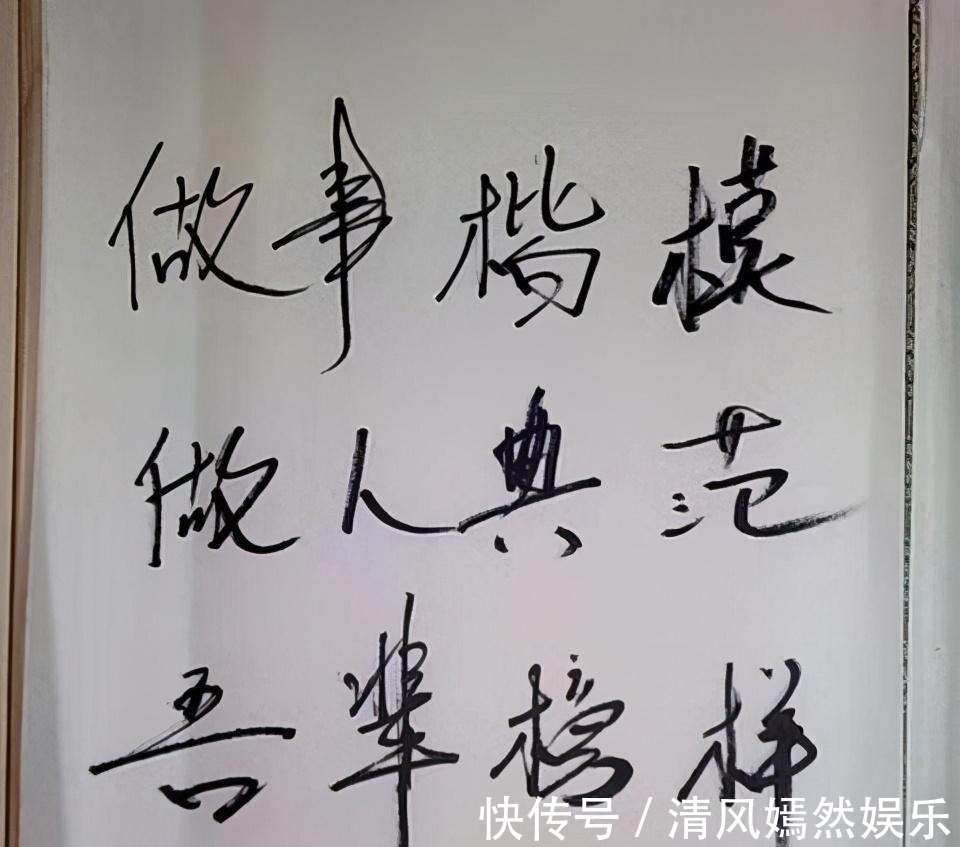 做事楷模
做人典范
吾辈榜样
快传号 / 清风嫣然娱乐